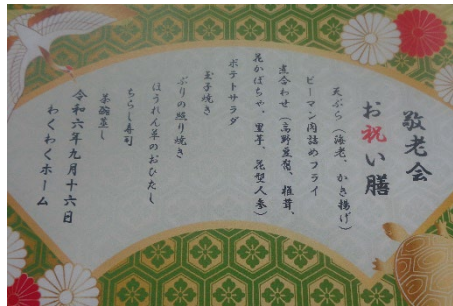 敬老会
お祝い膳
天ぷら（海老、かき揚げ）
ピーマン肉詰めフライ
煮合わせ（高野豆腐、椎茸、
花かぼちゃ、里芋、花型人参）
ポテトサラダ
玉子焼き
ぶりの照り焼き
ほうれん草のおひたし
ちらし寿司
茶碗蒸し
令和六年九月十六日
わくわくホーム